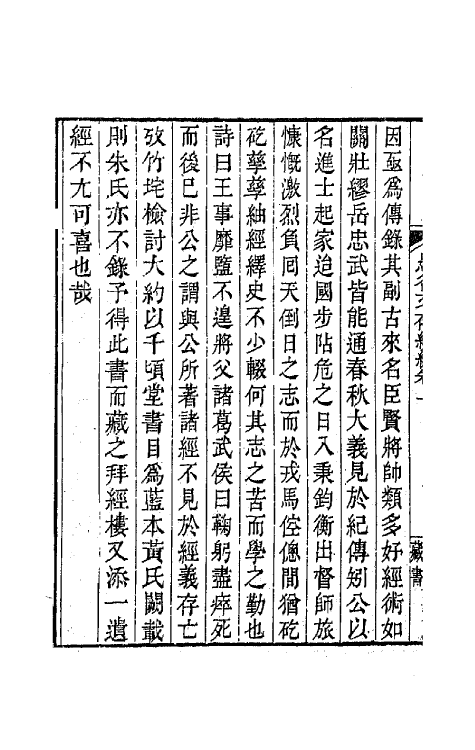 因亟爲傳錄其副古來名臣賢將帥類多好經術如
關壯繆岳忠武皆能通春秋大義見於紀傳矧公以
名進士起家迨國步阽危之日入秉鈞衡出督師旅
慷慨激烈負囘天倒日之志而於戎馬倥傯間猶矻
矻孳孳紬經繹史不少輟何其志之苦而學之勤也
詩曰王事靡盬不遑將父諸葛武侯曰鞠躬盡瘁死
而後已非公之謂與公所著諸經不見於經義存亡
攷竹垞檢討大約以千頃堂書目爲藍本黃氏闕載
則朱氏亦不錄予得此書而藏之拜經樓又添一遺
經不尤可喜也哉